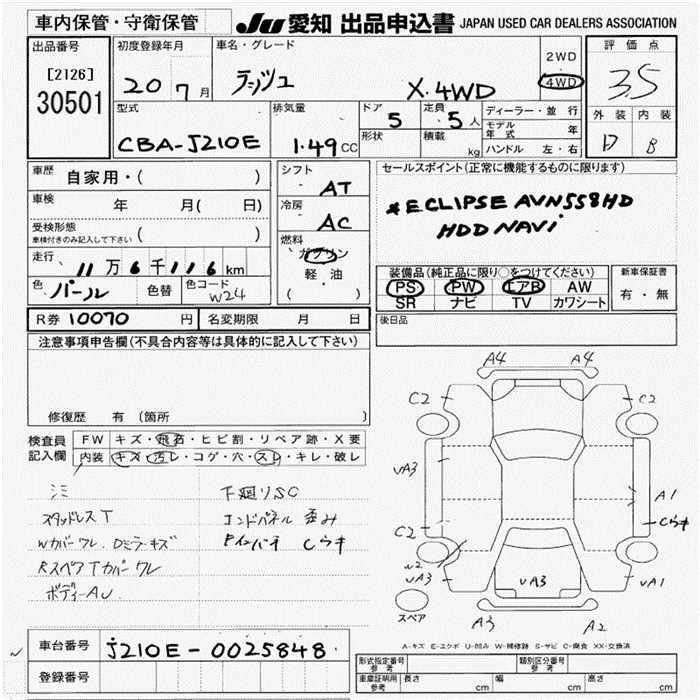 車内保管・守衛保管
JU 愛知 出品申込書 JAPAN USED CAR DEALERS ASSOCIATION
出品番号
[2126]
30501
初度登録年月
20 7 月
車名・グレード
ラッシュ X.4WD
2WD
4WD
評価点
3.5
外装 内装
D B
型式
CBA-J210E
排気量
1.49 CC
ドア
5
定員
5 人
形状
積載
kg
ディーラー・並行
モデル年式 年
ハンドル 左・右
車歴
自家用・( )
車検
年 月( 日)
受検形態
車検付きのみ記入して下さい ( )
走行
11 万 6 千 116 km
色 パール 色替 色コード W24
シフト
AT
冷房
AC
燃料
ガソリン
軽・油
( )
セールスポイント(正常に機能するものに限ります)
*ECLIPSE AVN558HD
HDD NAVi
装備品(純正品に限り○をつけてください)
PS PW エアB AW
SR ナビ TV カワシート
新車保証書
有・無
R券 10070 円 名変期限 月 日
後日品
注意事項申告欄(不具合内容等は具体的に記入して下さい)
修復歴 有(箇所
検査員記入欄
FW キズ・飛石・ヒビ割・リペア跡・X要
内装 キズ・汚レ・コゲ・穴・スレ・キレ・破レ
シミ 下廻りSC
スタッドレスT エンドパネル 歪み
Wカバーワレ、Dミラーキズ Fインパチ Cウキ
RスペアTカバーワレ
ボディーAU
A4 A4
C2 C2
UA3
A1
Cウキ
C2
W2
UA3 UA3 UA1
スペア
A3 A2
A-キズ E-エクボ U-凹み W-補修跡 S-サビ C-腐食 XX-交換済
車台番号 J210E-0025848
登録番号
形式指定番号
参考
類別区分番号
参考
車庫証明用
参考
長さ cm 幅 cm 高さ cm